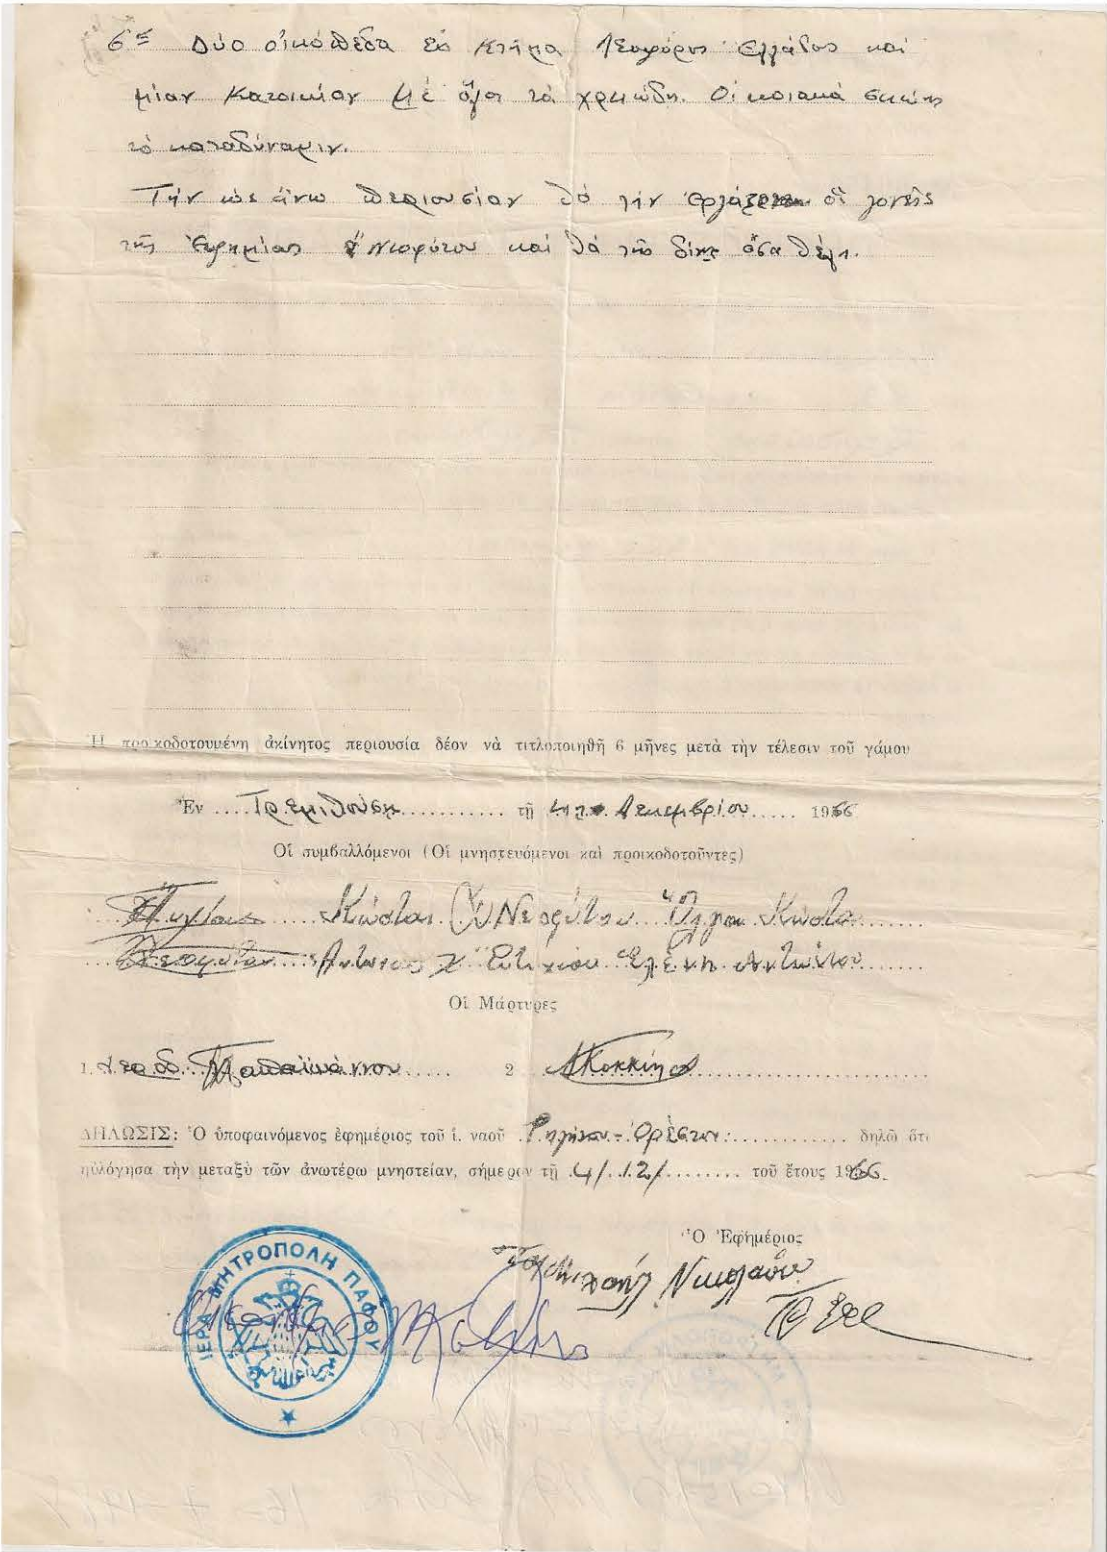 6ον Δύο οἰκόπεδα εἰς Κτῆμα Λεωφόρος Ἑλλάδος καὶ
μίαν Κατοικίαν Μὲ ὅλα τὰ χρειώδη. Οἰκοιακά σκεύη
τὸ
Τὴν ὡς ἄνω περιουσίαν θὰ τὴν οἱ γονεῖς
τῆς Νεοφύτου καὶ θὰ τῆς δίνη ὅσα θέλη.
Ἡ προικοδοτουμένη ἀκίνητος περιουσία δέον νὰ τιτλοποιηθῆ 6 μῆνες μετὰ τὴν τέλεσιν τοῦ γάμου
Ἐν Τρεμιθούση τῆ 4η Δεκεμβρίου 1966
Οἱ συμβαλλόμενοι (Οἱ μνηστευόμενοι καὶ προικοδοτοῦντες)
Κώστας Νεοφύτου Ὄλγα Κώστα
Ἀντώνιος Χ" Εὐτυχίου Ἑλένη Ἀντωνίου
Οἱ Μάρτυρες
1. Παπαϊωάννου 2 Κοκκίνος
ΔΗΛΩΣΙΣ: Ὁ ὑποφαινόμενος ἐφημέριος τοῦ ἱ. ναοῦ δηλῶ ὅτι
ηὐλόγησα τὴν μεταξὺ τῶν ἀνωτέρω μνηστείαν, σήμερον τῆ 4/12/ τοῦ ἔτους 1966.
Ὁ Ἐφημέριος
Νικολάου
ΙΕΡΑ ΜΗΤΡΟΠΟΛΗ ΠΑΦΟΥ